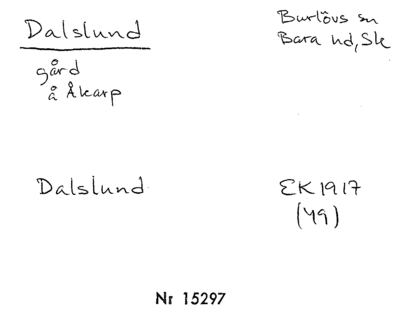 Dalslund
Burlövs sn
Bara hd, Sk
gård
å Åkarp
Dalslund
EK 1917
(49)
Nr 15297